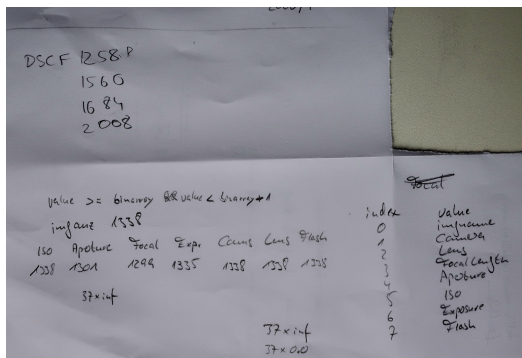 DSCF 1258P
1560
1684
2008
value >= binarray && value < binarray+1
imganz 1338
ISO Aperture Focal Expr. Cams Lens Flash
1338 1301 1299 1335 1338 1338 1338
37 x inf
37 x inf
37 x 0.0
Focal
index value
0 imgname
1 Camera
2 Lens
3 Focal Length
4 Aperture
5 ISO
6 Exposure
7 Flash